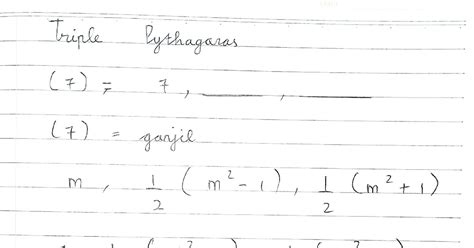 Triple Pythagaras
(7) = 7, ______, ______
(7) = ganjil
m, 1/2 (m² - 1), 1/2 (m² + 1)